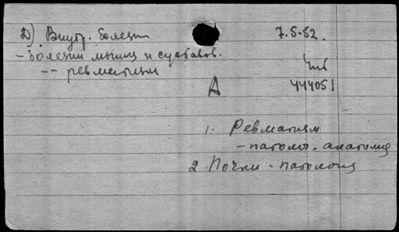 Д) Внутр. болезни 7.5-52.
- болезни мышц и суставов.
-- ревматизм
А 444051
1. Ревматизм
- патолог. анатомия
2. Почки - патология